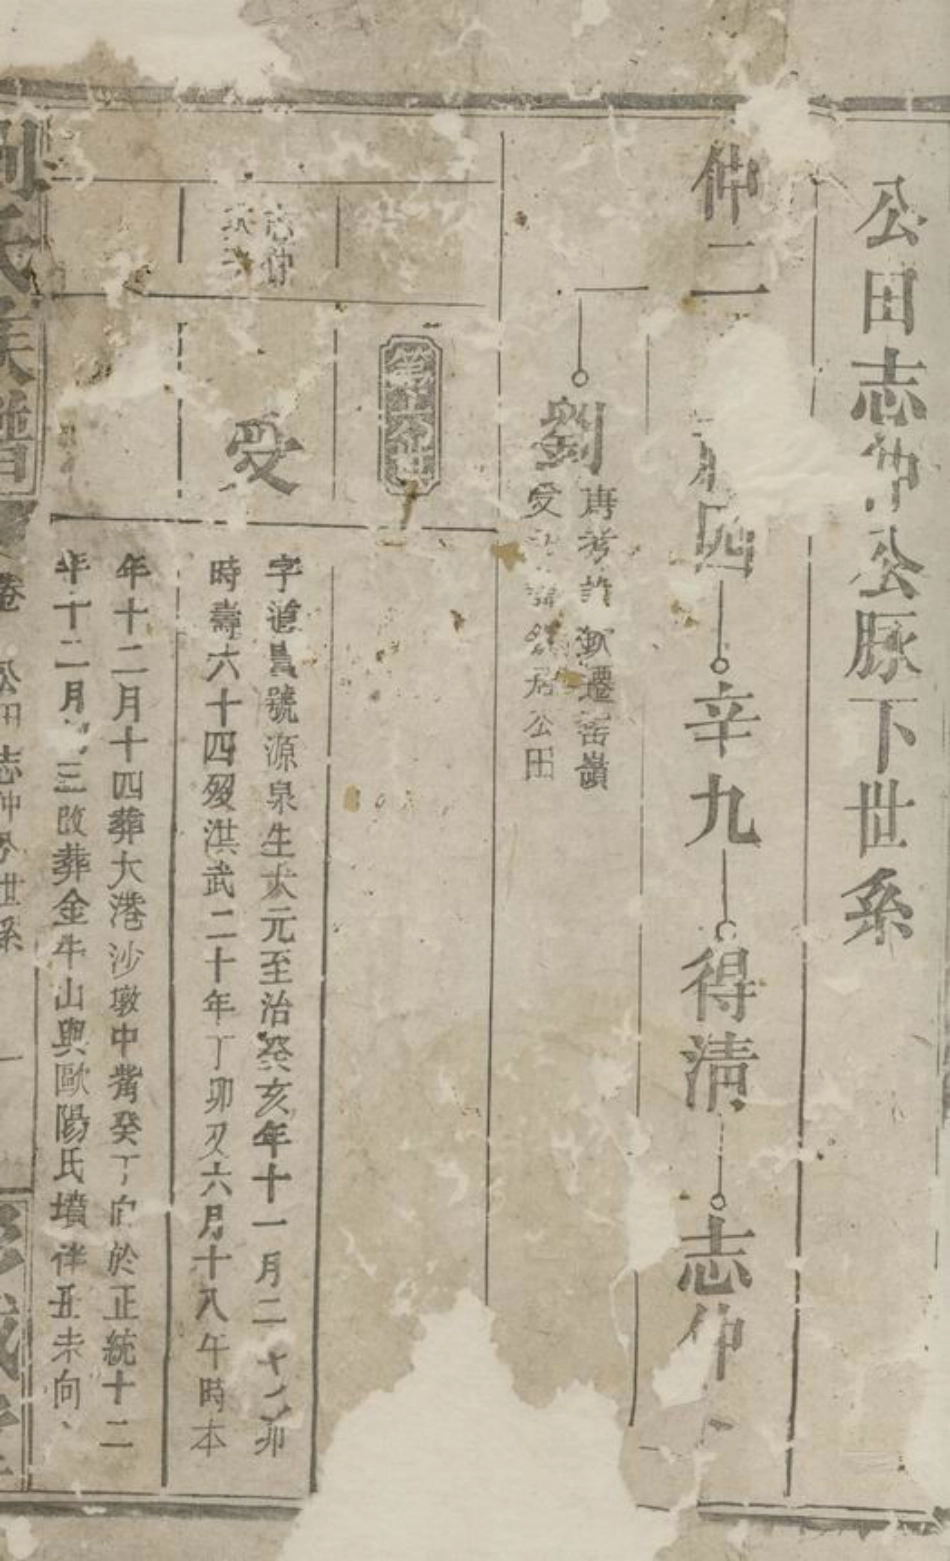 公田志仲公脉下世系
仲二 四 辛九 得清 志仲
劉
唐考許 遷 嶺
受 居公田
志仲
次子
受
字道 號源泉生大元至治癸亥年十一月二十 卯
時壽六十四歿洪武二十年丁卯又六月十八午時本
年十二月十四葬大港沙墩中嘴癸丁向於正統十二
年十二月 三改葬金牛山與歐陽氏墳伴丑未向
劉氏族譜
卷 公田志仲公世系 一